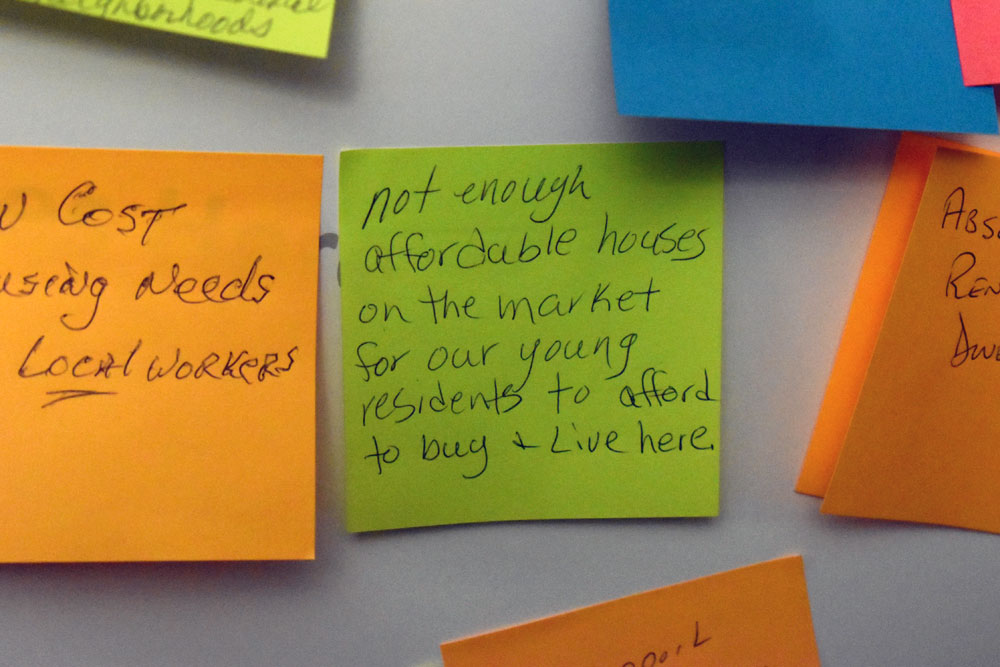 neighborhoods
Cost
Needs
Local workers
not enough
affordable houses
on the market
for our young
residents to afford
to buy + Live here.